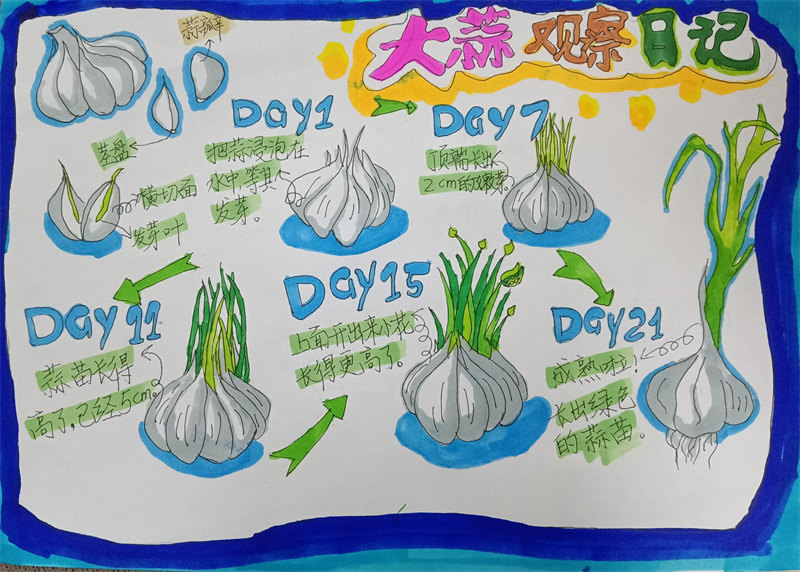 大蒜观察日记
蒜瓣
茎盘
横切面
发芽叶
Day1
把蒜浸泡在
水中,等其
发芽。
Day7
顶端长出
2cm的嫩芽。
Day11
蒜苗长得
高了,已经5cm。
Day15
上面开出来小花
长得更高了。
Day21
成熟啦!
长出绿色
的蒜苗。